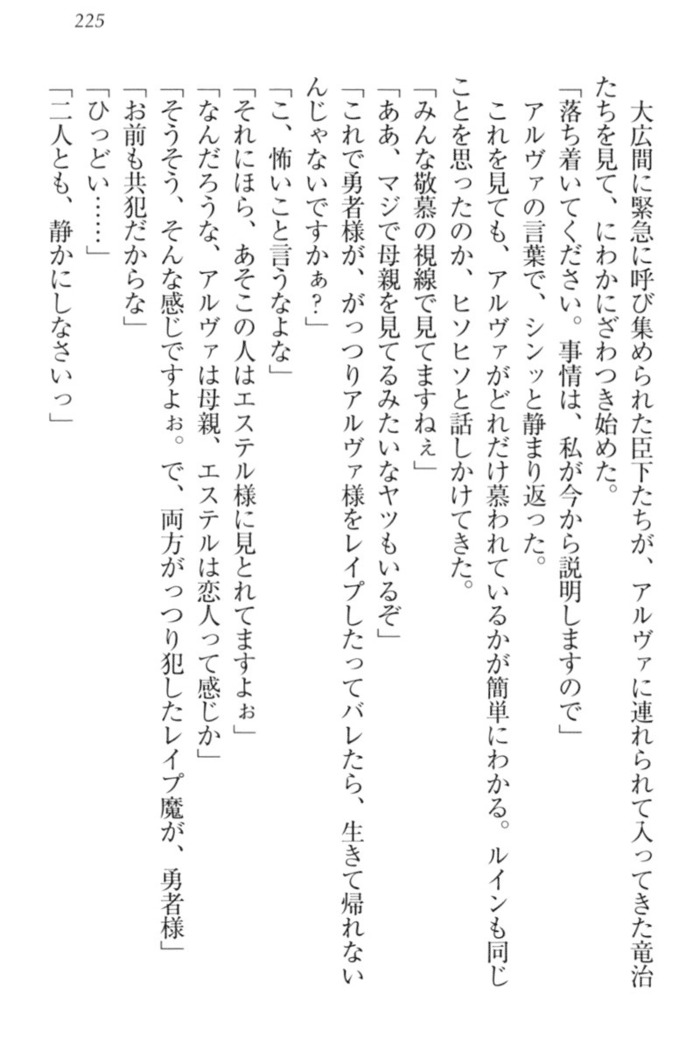 225
大広間に緊急に呼び集められた臣下たちが、アルヴァに連れられて入ってきた竜治
たちを見て、にわかにざわつき始めた。
「落ち着いてください。事情は、私が今から説明しますので」
アルヴァの言葉で、シンッと静まり返った。
これを見ても、アルヴァがどれだけ慕われているかが簡単にわかる。ルインも同じ
ことを思ったのか、ヒソヒソと話しかけてきた。
「みんな敬慕の視線で見てますねぇ」
「ああ、マジで母親を見てるみたいなヤツもいるぞ」
「これで勇者様が、がっつりアルヴァ様をレイプしたってバレたら、生きて帰れない
んじゃないですかぁ？」
「こ、怖いこと言うなよな」
「それにほら、あそこの人はエステル様に見とれてますよぉ」
「なんだろうな、アルヴァは母親、エステルは恋人って感じか」
「そうそう、そんな感じですよぉ。で、両方がっつり犯したレイプ魔が、勇者様」
「お前も共犯だからな」
「ひっどい……」
「二人とも、静かにしなさいっ」